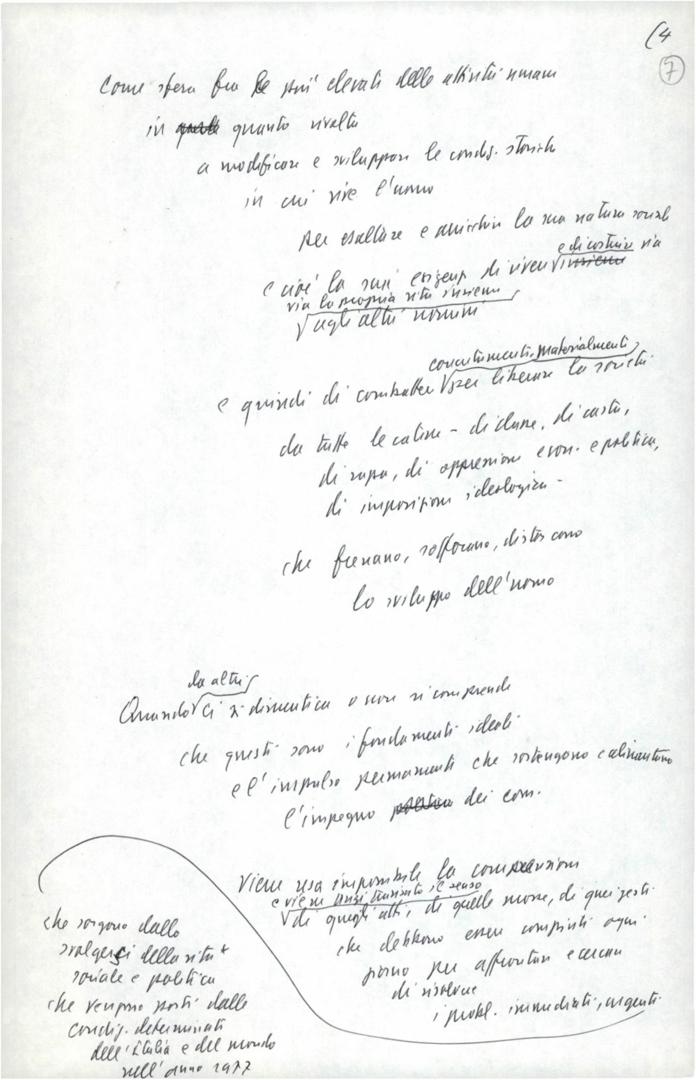 (4
7
come sfera fra le più elevate delle attività umane
in quanto rivolta
a modificare e sviluppare le condiz. storiche
in cui vive l'uomo
per esaltare e arricchire la sua natura sociale
e cioè la sua esigenza di vivere e di costruire via
via la propria vita insieme
agli altri uomini
concretamente, materialmente,
e quindi di combattere per liberare la società
da tutte le catene - di classe, di casta,
di razza, di oppressione econ. e politica,
di imposizione ideologica -
che frenano, soffocano, distorcono
lo sviluppo dell'uomo
da altri
Quando ci si dimentica o non si comprende
che questi sono i fondamenti ideali
e l'impulso permanente che sostengono e alimentano
l'impegno politico dei com.
viene resa impossibile la comprensione
e viene anzi travisato il senso
di quegli atti, di quelle mosse, di quei gesti
che debbono essere compiuti ogni
giorno per affrontare e cercare
di risolvere
i probl. immediati, urgenti
che sorgono dallo
svolgersi della vita
sociale e politica
che vengono posti dalle
condiz. determinate
dell'Italia e del mondo
nell'anno 1977